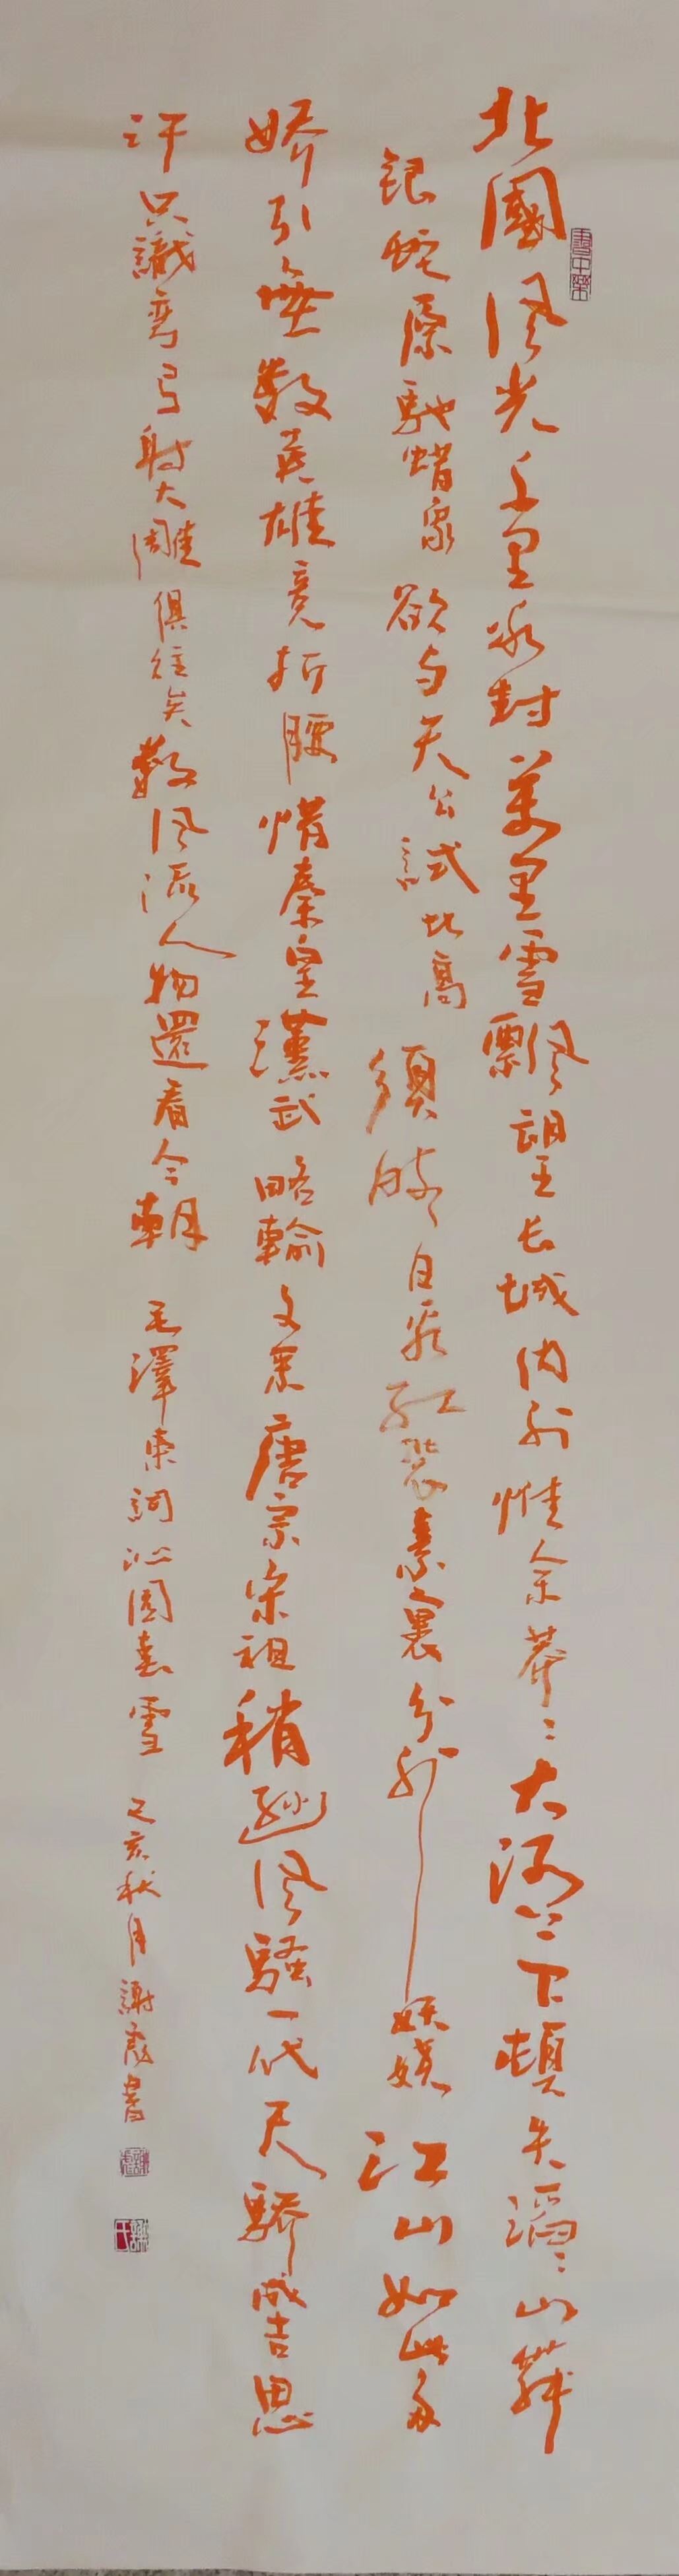 北國风光千里冰封萬里雪飘望长城内外惟余莽〻大河上下頓失滔〻山舞
銀蛇原馳蜡象欲与天公試比高須晴日看红装素裹分外妖娆江山如此多
娇引無數英雄竞折腰惜秦皇漢武略輸文采唐宗宋祖稍逊风騷一代天驕成吉思
汗只識弯弓射大雕俱往矣數风流人物還看今朝 毛澤東詞沁園春雪 己亥秋月謝書